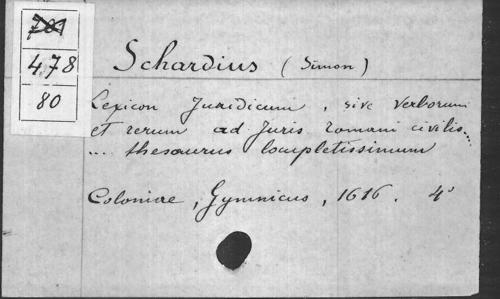 701
478
80
Schardius (Simon)
Lexicon Juridicum, sive verborum
et rerum ad Juris romani civilis...
... thesaurus locupletissimum
Coloniae, Gymnicus, 1616. 4°